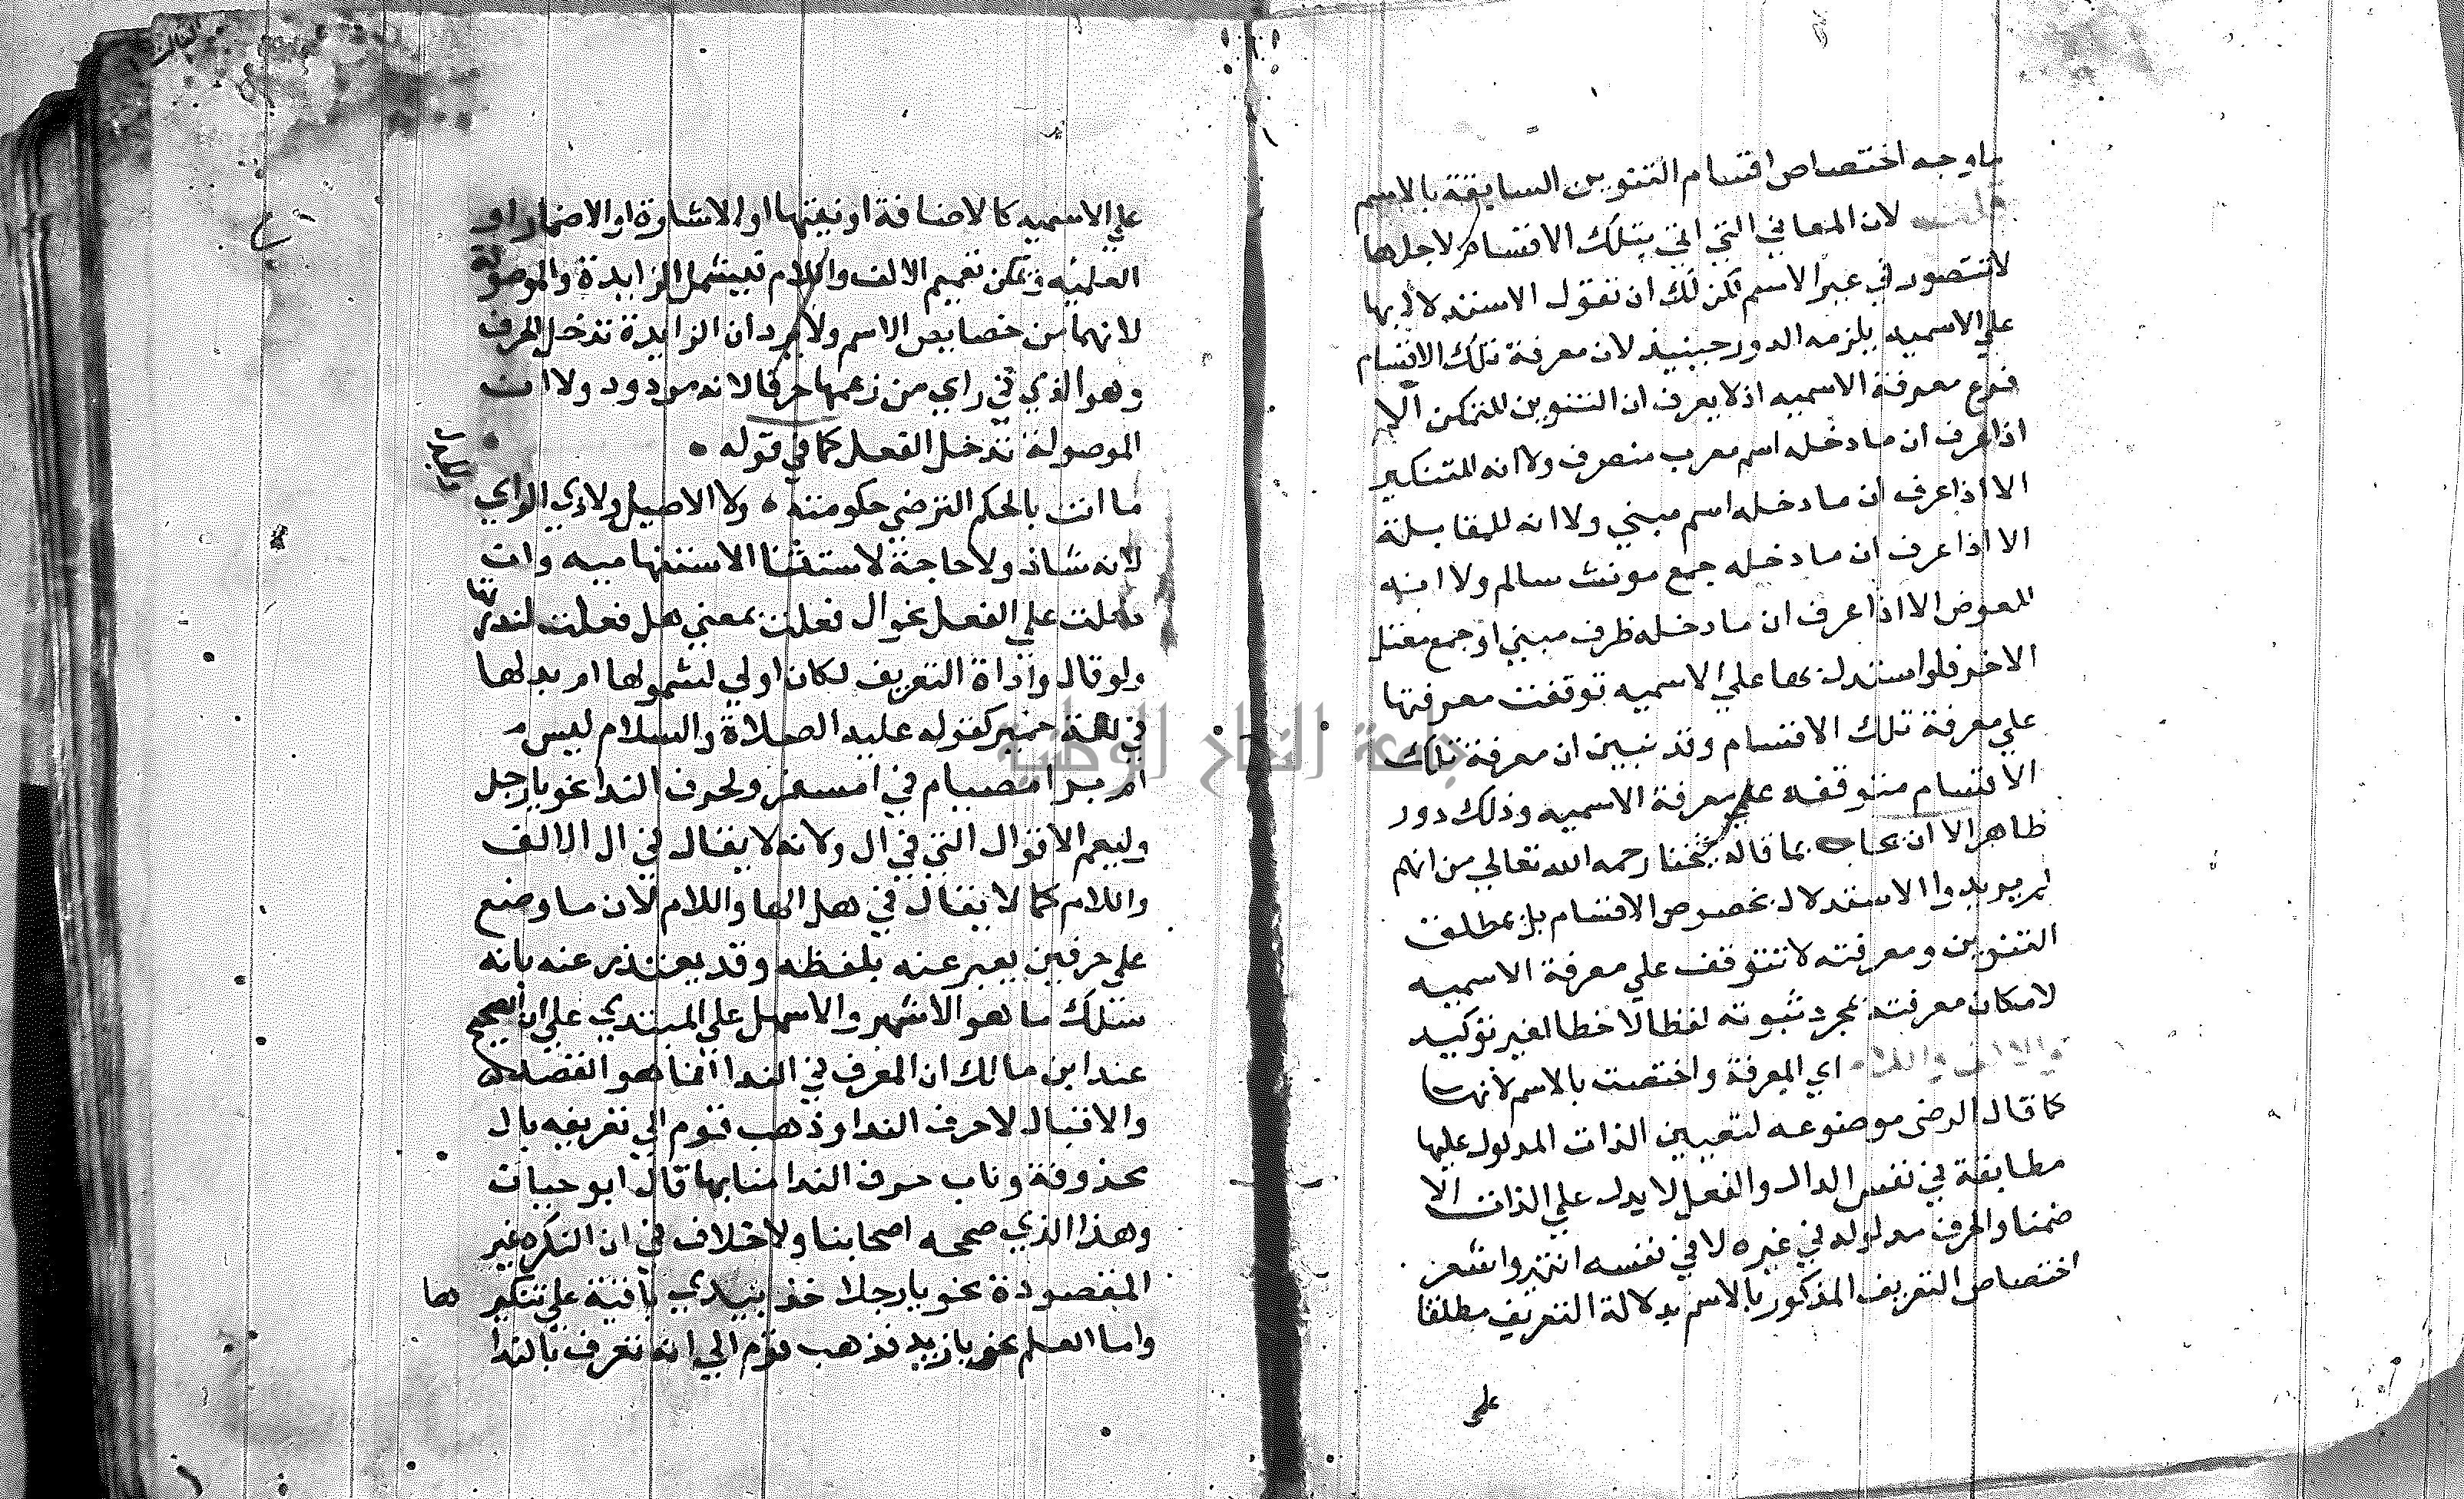 ما وجه اختصاص اقسام التنوين السابقة بالاسم
قلت لان المعاني التي اتي بتلك الاقسام لاجلها
لا تتصور في غير الاسم لكن لك ان تقول الاستدلال بها
علي الاسميه يلزمه الدور حينيذ لان معرفة تلك الاقسام
فرع معرفة الاسميه اذ لا يعرف ان التنوين للتمكن الا
اذا عرف ان ما دخله اسم معرب منصرف ولا انه للتنكير
الا اذا عرف ان ما دخله اسم مبني ولا انه للمقابلة
الا اذا عرف ان ما دخله جمع مونث سالم ولا انه
للعوض الا اذا عرف ان ما دخله ظرف مبني او جمع معتل
الاخر فلو استدل بها علي الاسميه توقفت معرفتها
علي معرفة تلك الاقسام وقد تبين ان معرفة تلك
الاقسام متوقفه علي معرفة الاسميه وذلك دور
ظاهر الا ان يجاب بما قاله شيخنا رحمه الله تعالي من انهم
لم يريدوا الاستدلال بخصوص الاقسام بل بمطلق
التنوين ومعرفته لا تتوقف علي معرفة الاسميه
لامكان معرفته بمجرد ثبوته لفظا لا خطا لغير توكيد
والالف واللام اي المعرفة واختصت بالاسم لانها
كما قال الرضى موضوعه لتعيين الذات المدلول عليها
مطابقة في نفس الدال والفعل لا يدل علي الذات الا
ضمنا والحرف مدلوله في غيره لا في نفسه انتهي واشعر
اختصاص التعريف المذكور بالاسم بدلالة التعريف مطلقا
علي
علي الاسميه كالاضافة او نيتها او الاشارة او الاضمار او
العلميه ويمكن تعميم الالف واللام فيشمل الزايدة والموصولة
لانهما من خصايص الاسم ولا يرد ان الزايدة تدخل الحرف
وهو الذي في راي من زعمها حرفا لانه مردود ولا ان
الموصولة تدخل الفعل كما في قوله
ما انت بالحكم الترضي حكومته ولا الاصيل ولا ذي الراي
والجدل
لانه شاذ ولا حاجة لاستثنا الاستفهاميه وان
دخلت علي الفعل نحو ال فعلت بمعني هل فعلت لندرتها
ولو قال واداة التعريف لكان اولي لشمولها ام بدلها
في لغة حمير كقوله عليه الصلاة والسلام ليس م
ام بر امصيام في امسفر ولحرف الندا نحو يا رجل
وليعم الاقوال التي في ال ولانه لا يقال في ال الالف
واللام كما لا يقال في هل الها واللام لان ما وضع
علي حرفين يعبر عنه بلفظه وقد يعتذر عنه بانه
سلك ما هو الاشهر والاسهل علي المبتدي علي ان الصحيح
عند ابن مالك ان المعرف في الندا انما هو القصد
والاقبال لا حرف الندا وذهب قوم الي تعريفه بال
محذوفة وناب حرف الندا منابها قال ابو حيان
وهذا الذي صححه اصحابنا ولا خلاف في ان النكره غير
المقصودة نحو يا رجلا خذ بيدي باقية علي تنكيرها
واما العلم نحو يا زيد فذهب قوم الي انه تعرف بالندا
جامعة النجاح الوطنية